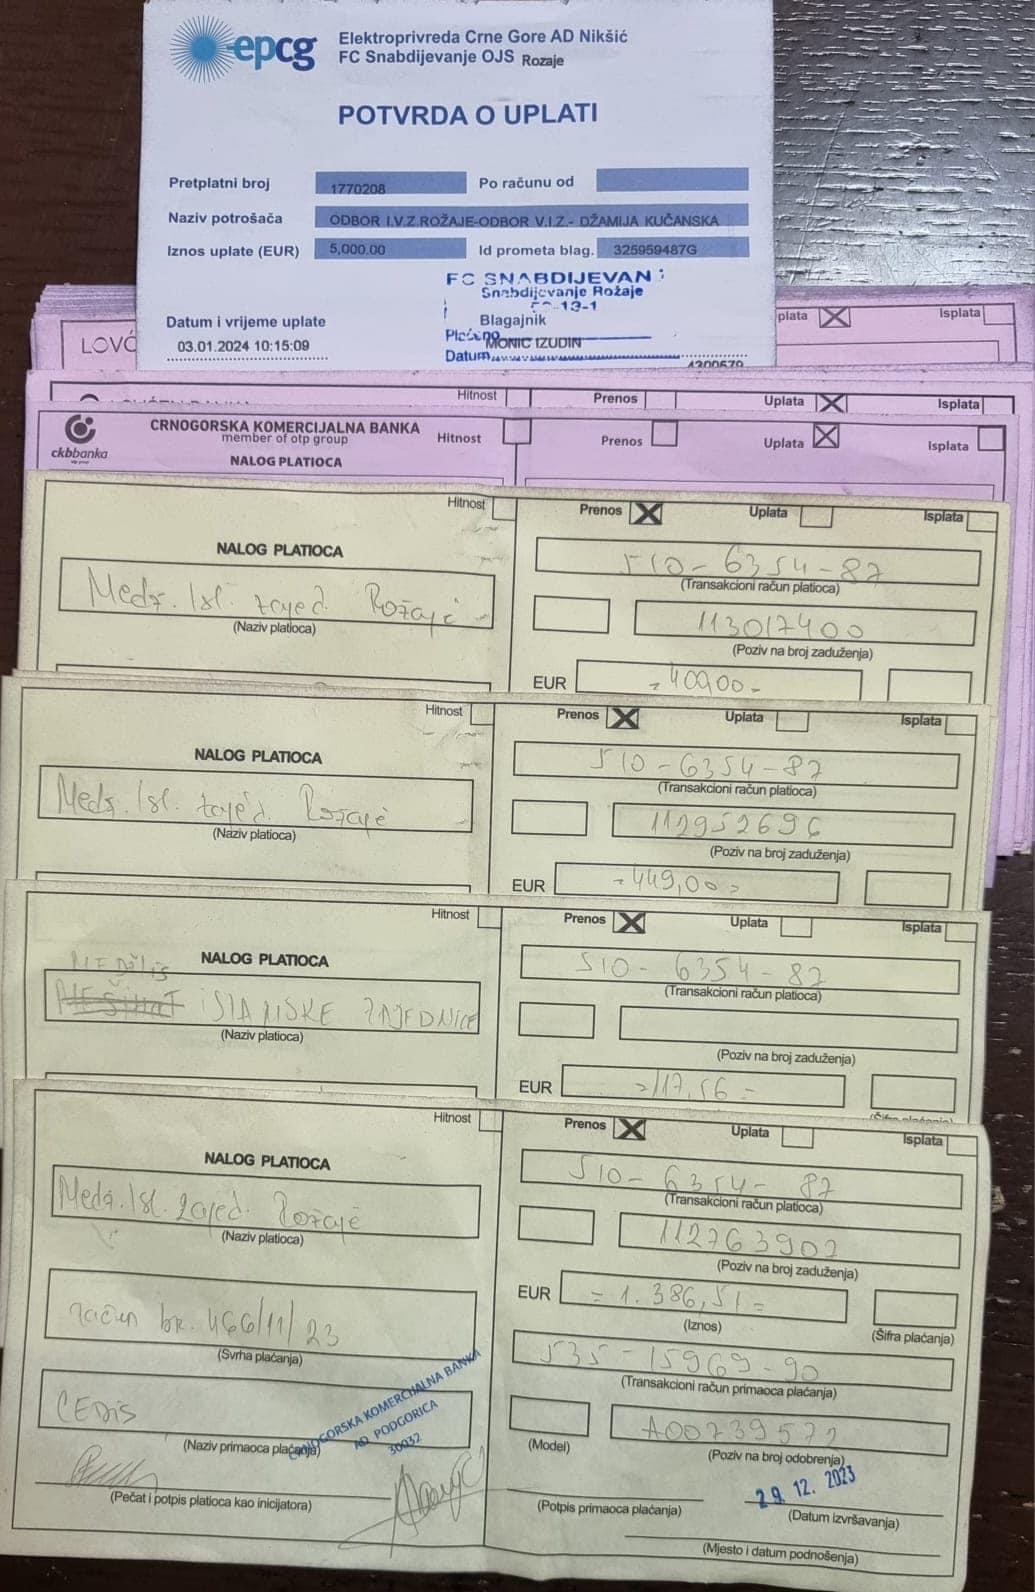 epcg
Elektroprivreda Crne Gore AD Nikšić
FC Snabdijevanje OJS Rozaje
POTVRDA O UPLATI
Pretplatni broj 1770208 Po računu od
Naziv potrošača ODBOR I.V.Z.ROŽAJE-ODBOR V.I.Z.- DŽAMIJA KUČANSKA
Iznos uplate (EUR) 5,000.00 Id prometa blag. 325959487G
FC SNABDIJEVAN
Snabdijevanje Rožaje
13-1
Datum i vrijeme uplate Blagajnik
03.01.2024 10:15:09 Plaćeno MONIC IZUDIN
Datum
LOVĆ plata Isplata
Hitnost Prenos Uplata Isplata
ckbbanka
CRNOGORSKA KOMERCIJALNA BANKA
member of otp group Hitnost Prenos Uplata Isplata
NALOG PLATIOCA
Hitnost Prenos Uplata Isplata
NALOG PLATIOCA 510-6354-87
(Transakcioni račun platioca)
Medž. Isl. zajed. Rožaje
(Naziv platioca) 113017400
(Poziv na broj zaduženja)
EUR = 409,00 =
Hitnost Prenos Uplata Isplata
NALOG PLATIOCA 510-6354-87
(Transakcioni račun platioca)
Medž. Isl. zajed. Rožaje
(Naziv platioca) 112952696
(Poziv na broj zaduženja)
EUR = 449,00 =
Hitnost Prenos Uplata Isplata
NALOG PLATIOCA 510-6354-87
(Transakcioni račun platioca)
MEDŽLIS
MEŠIHAT ISLAMSKE ZAJEDNICE
(Naziv platioca)
(Poziv na broj zaduženja)
EUR = 117,56 =
(Šifra plaćanja)
Hitnost Prenos Uplata Isplata
NALOG PLATIOCA 510-6354-87
(Transakcioni račun platioca)
Medž. Isl. zajed. Rožaje
(Naziv platioca) 112763902
(Poziv na broj zaduženja)
EUR = 1.386,51 =
(Iznos) (Šifra plaćanja)
račun br. 466/11/23
(Svrha plaćanja) 535-15969-90
(Transakcioni račun primaoca plaćanja)
CEDIS
(Naziv primaoca plaćanja)
CRNOGORSKA KOMERCIJALNA BANKA
AD PODGORICA
30032
A00239572
(Model) (Poziv na broj odobrenja)
29. 12. 2023
(Pečat i potpis platioca kao inicijatora) (Potpis primaoca plaćanja) (Datum izvršavanja)
(Mjesto i datum podnošenja)